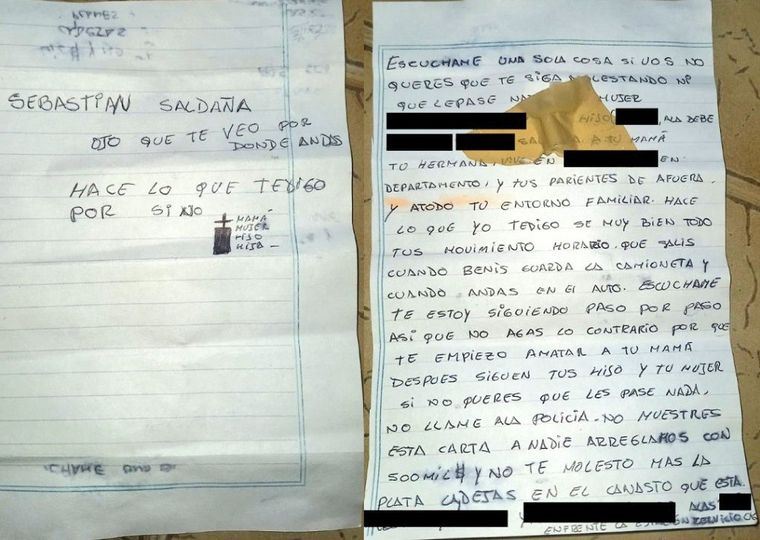 SEBASTIAN SALDAÑA
OJO QUE TE VEO POR
DONDE ANDAS
HACE LO QUE TEDIGO
POR SI NO
MAMÁ
MUJER
HISO
HIJA
ESCUCHAME UNA SOLA COSA SI VOS NO
QUERES QUE TE SIGA MOLESTANDO NI
QUE LEPASE MUJER
HISO ,ALA DEBE
A TU MAMÁ
TU HERMANA, VIVE EN EN
DEPARTAMENTO, Y TUS PARIENTES DE AFUERA.
Y ATODO TU ENTORNO FAMILIAR. HACE
LO QUE YO TEDIGO SE MUY BIEN TODO
TUS MOVIMIENTO HORARIO. QUE SALIS
CUANDO BENIS GUARDA LA CAMIONETA Y
CUANDO ANDAS EN EL AUTO. ESCUCHAME
TE ESTOY SIGUIENDO PASO POR PASO
ASI QUE NO AGAS LO CONTRARIO POR QUE
TE EMPIEZO AMATAR A TU MAMÁ
DESPUES SIGUEN TUS HISO Y TU MUJER
SI NO QUERES QUE LES PASE NADA.
NO LLAME ALA POLICIA. NO MUESTRES
ESTA CARTA A NADIE ARREGLAMOS CON
500 MIL $ Y NO TE MOLESTO MAS LA
PLATA EN EL CANASTO QUE ESTA
Y ALAS
ENFRENTE LA ESTACION SERVICIO